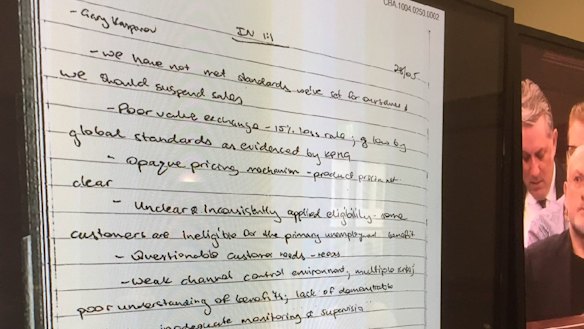 CBA.1004.0250.0002
- Gary Kasparov
IN 1:1
28/05
- we have not met standards we've set for ourselves &
we should suspend sales
- Poor value exchange - 15% loss rate; g low by
global standards as evidenced by KPMG
- Opaque pricing mechanism - product pricing not
clear
- Unclear & Inconsistently applied eligibility - some
customers are Ineligible for the primary unemployment benefit
- Questionable customer needs -
- weak channel control environment, multiple
poor understanding of benefits; lack of demonstrable
inadequate monitoring & supervision